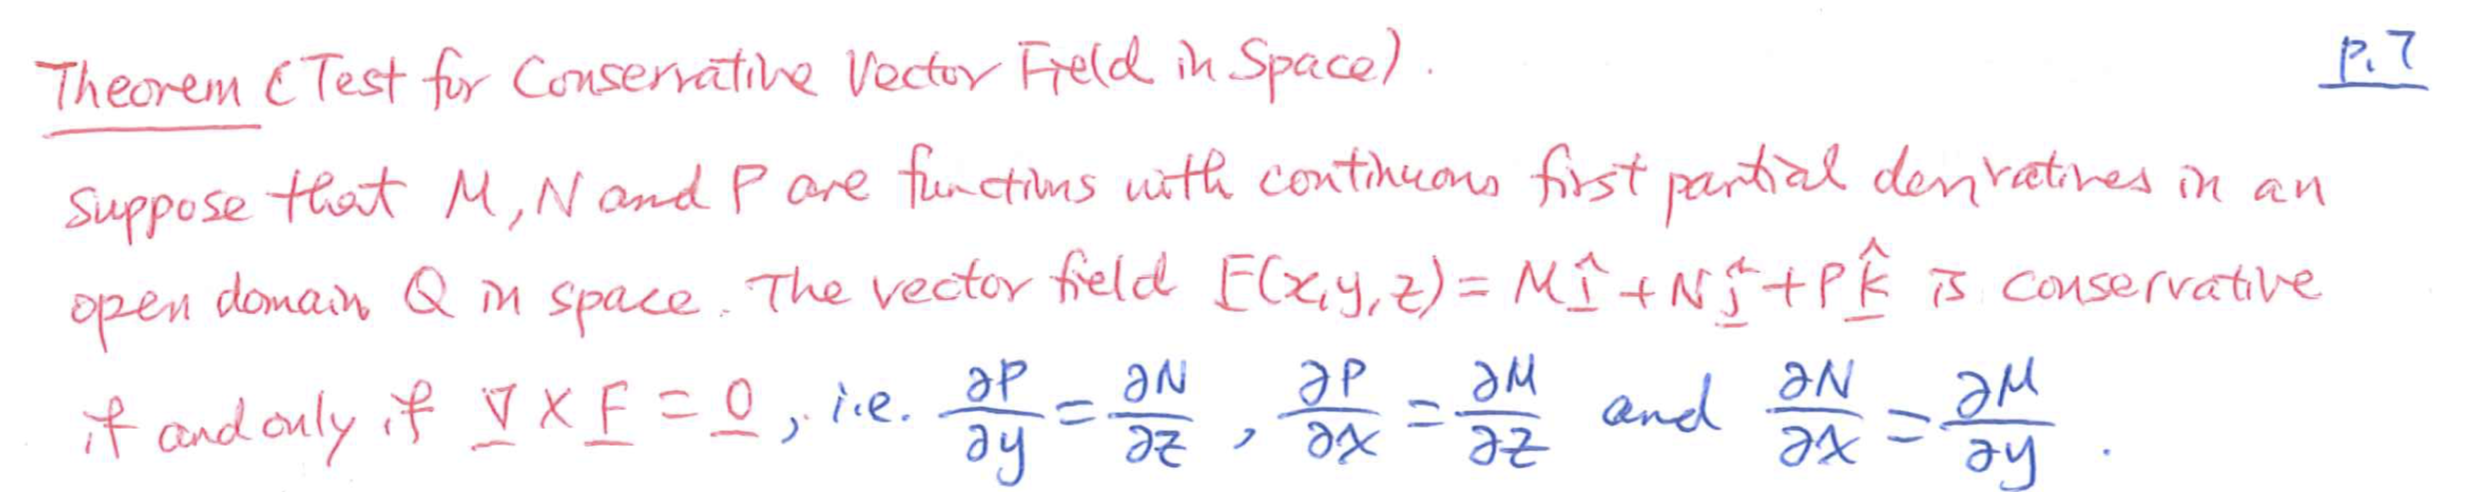 Theorem (Test for Conservative Vector Field in Space). P.7
Suppose that M, N and P are functions with continuous first partial derivatives in an
open domain Q in space. The vector field F(x,y,z) = Mî + Nĵ + Pk̂ is conservative
if and only if ∇ × F = 0, i.e. ∂P/∂y = ∂N/∂z, ∂P/∂x = ∂M/∂z and ∂N/∂x = ∂M/∂y.